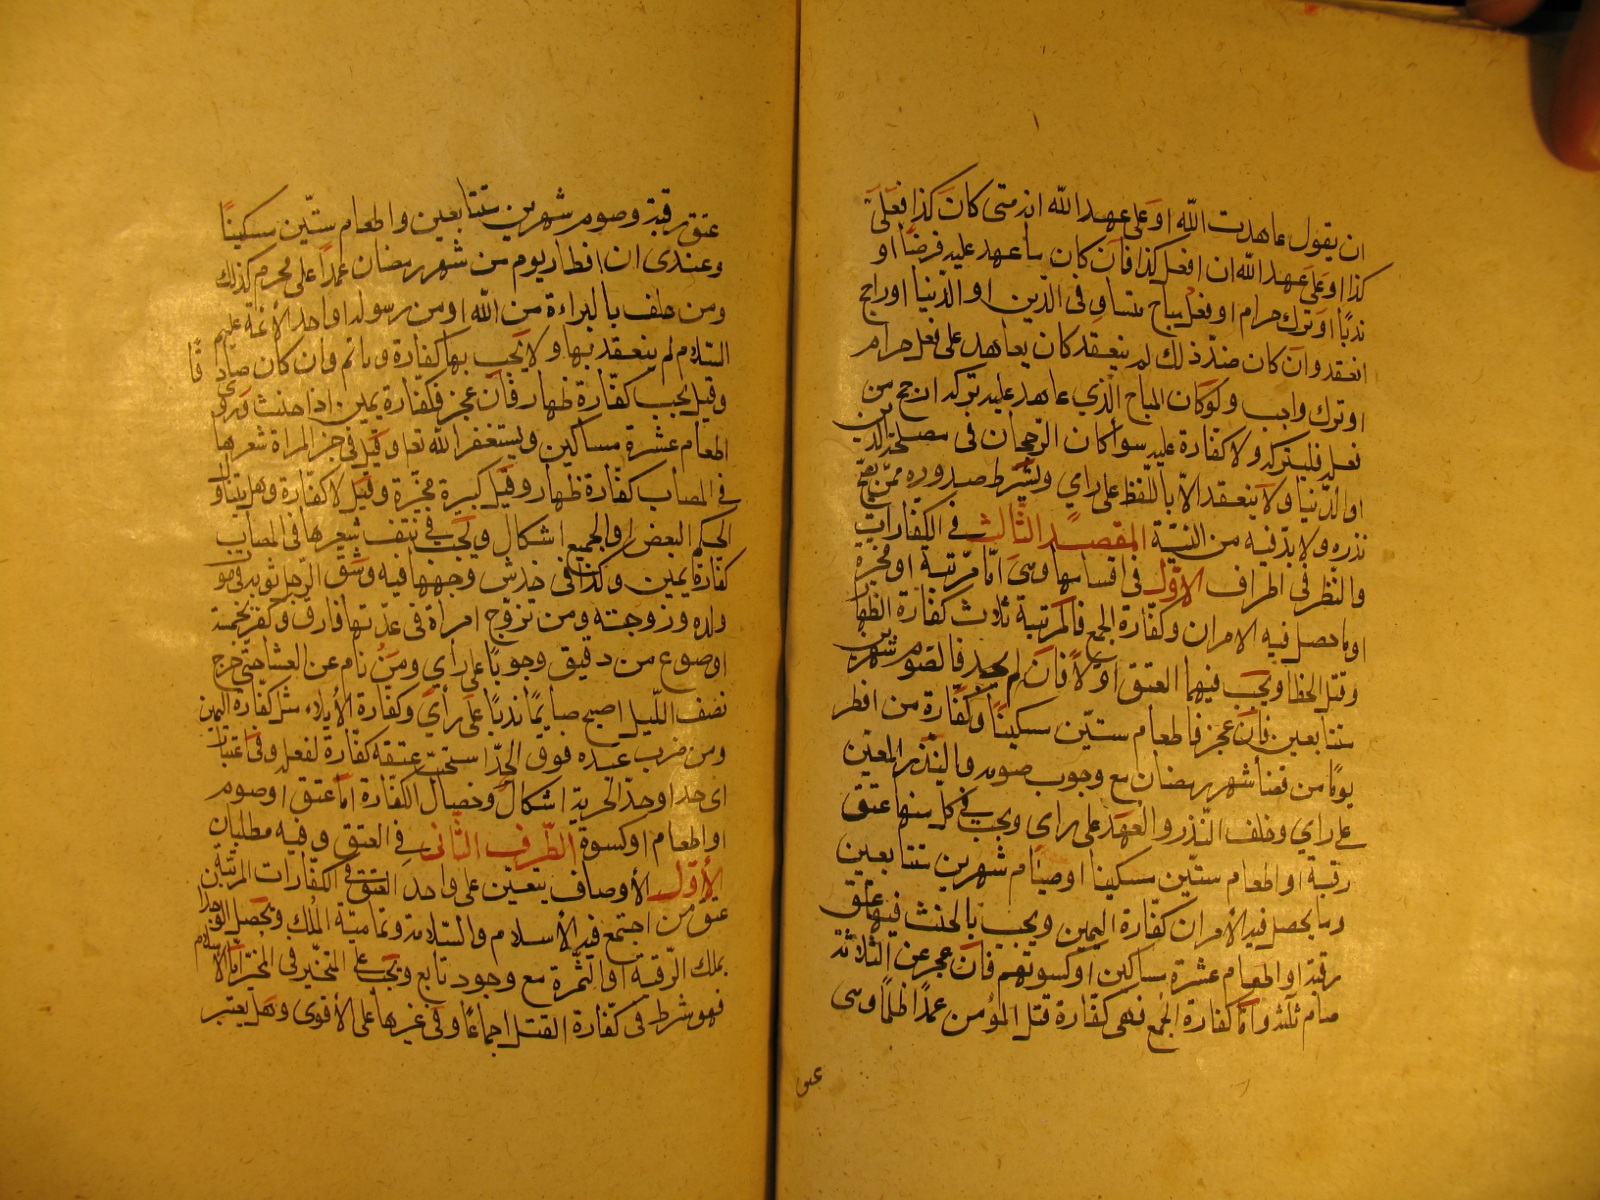 ان يقول عاهدت الله او على عهد الله انه متى كان كذا فعلى
كذا او على عهد الله ان افعل كذا فان كان ما عهد عليه فرضا او
ندبا او ترك حرام او فعل مباح متساو فى الدين او الدنيا او راجح
انعقد وان كان ضد ذلك لم ينعقد كان يعاهد على فعل حرام
او ترك واجب ولو كان المباح الذي عاهد عليه تركه ارجح من
فعله فليتركه ولا كفارة عليه سوأ كان الرجحان فى مصلحة الدين
او الدنيا ولا ينعقد الا باللفظ على راي ويشترط صدوره ممن يصح
نذره ولا بد فيه من النية المقصد الثالث فى الكفارات
والنظر فى اطراف الاول فى اقسامها وهى اما مرتبة او مخيرة
او ما حصل فيه الامران وكفارة الجمع فالمرتبة ثلاث كفارة الظهار
وقتل الخطا ويجب فيهما العتق اولا فان لم يجد فالصوم شهرين
متتابعين فان عجز فاطعام ستين مسكينا وكفارة من افطر
يوما من قضأ شهر رمضان مع وجوب صومه والنذر المعين
على راي وخلف النذر والعهد على راي ويجب فى كل منها عتق
رقبة او اطعام ستين مسكينا او صيام شهرين متتابعين
وما يحصل فيه الأمران كفارة اليمين ويجب بالحنث فيها عتق
رقبة او اطعام عشرة مساكين او كسوتهم فان عجز عن الثلاثة
صام ثلثة واما كفارة الجمع فهى كفارة قتل المؤمن عمدا ظلما وهى
عتق
عتق رقبة وصوم شهرين متتابعين واطعام ستين مسكينا
وعندى ان افطار يوم من شهر رمضان عمدا على محرم كذلك
ومن حلف بالبراءة من الله او من رسوله او احد الأئمة عليهم
السلام لم ينعقد بها ولا يجب بها كفارة وياثم وان كان صادقا
وقيل يجب كفارة ظهار فان عجز فكفارة يمين اذا حنث وروى
اطعام عشرة مساكين ويستغفر الله تعا وقيل فى جز المراة شعرها
فى المصاب كفارة ظهار وقيل كبيرة مخيرة وقيل لا كفارة وهل يتناول
الحكم البعض او الجميع اشكال ويجب فى نتف شعرها فى المصاب
كفارة يمين وكذا فى خدش وجهها فيه وشق الرجل ثوبه فى موت
ولده وزوجته ومن تزوج امراة فى عدتها فارق وكفر بخمسة
اصوع من دقيق وجوبا على رأي ومن نام عن العشا حتى خرج
نصف الليل اصبح صايما ندبا على رأي وكفارة الأيلاء مثل كفارة اليمين
ومن ضرب عبده فوق الحد استحب عتقه كفارة لفعله وفى اعتبار
اى حد او حد الحرية اشكال وخصال الكفارة اما عتق او صوم
او اطعام او كسوة الطرف الثانى فى العتق وفيه مطلبان
الأول الأوصاف يتعين على واحد العتق فى الكفارات المرتبة
عتق من اجتمع فيه الأسلام والسلامة وتمامية الملك ويحصل الوجدان
بملك الرقبة او الثمرة مع وجود تابع ويجب على المتخير فى المخيرة اما الأسلام
فهو شرط فى كفارة القتل اجماعا وفى غيرها على الأقوى وهل يعتبر